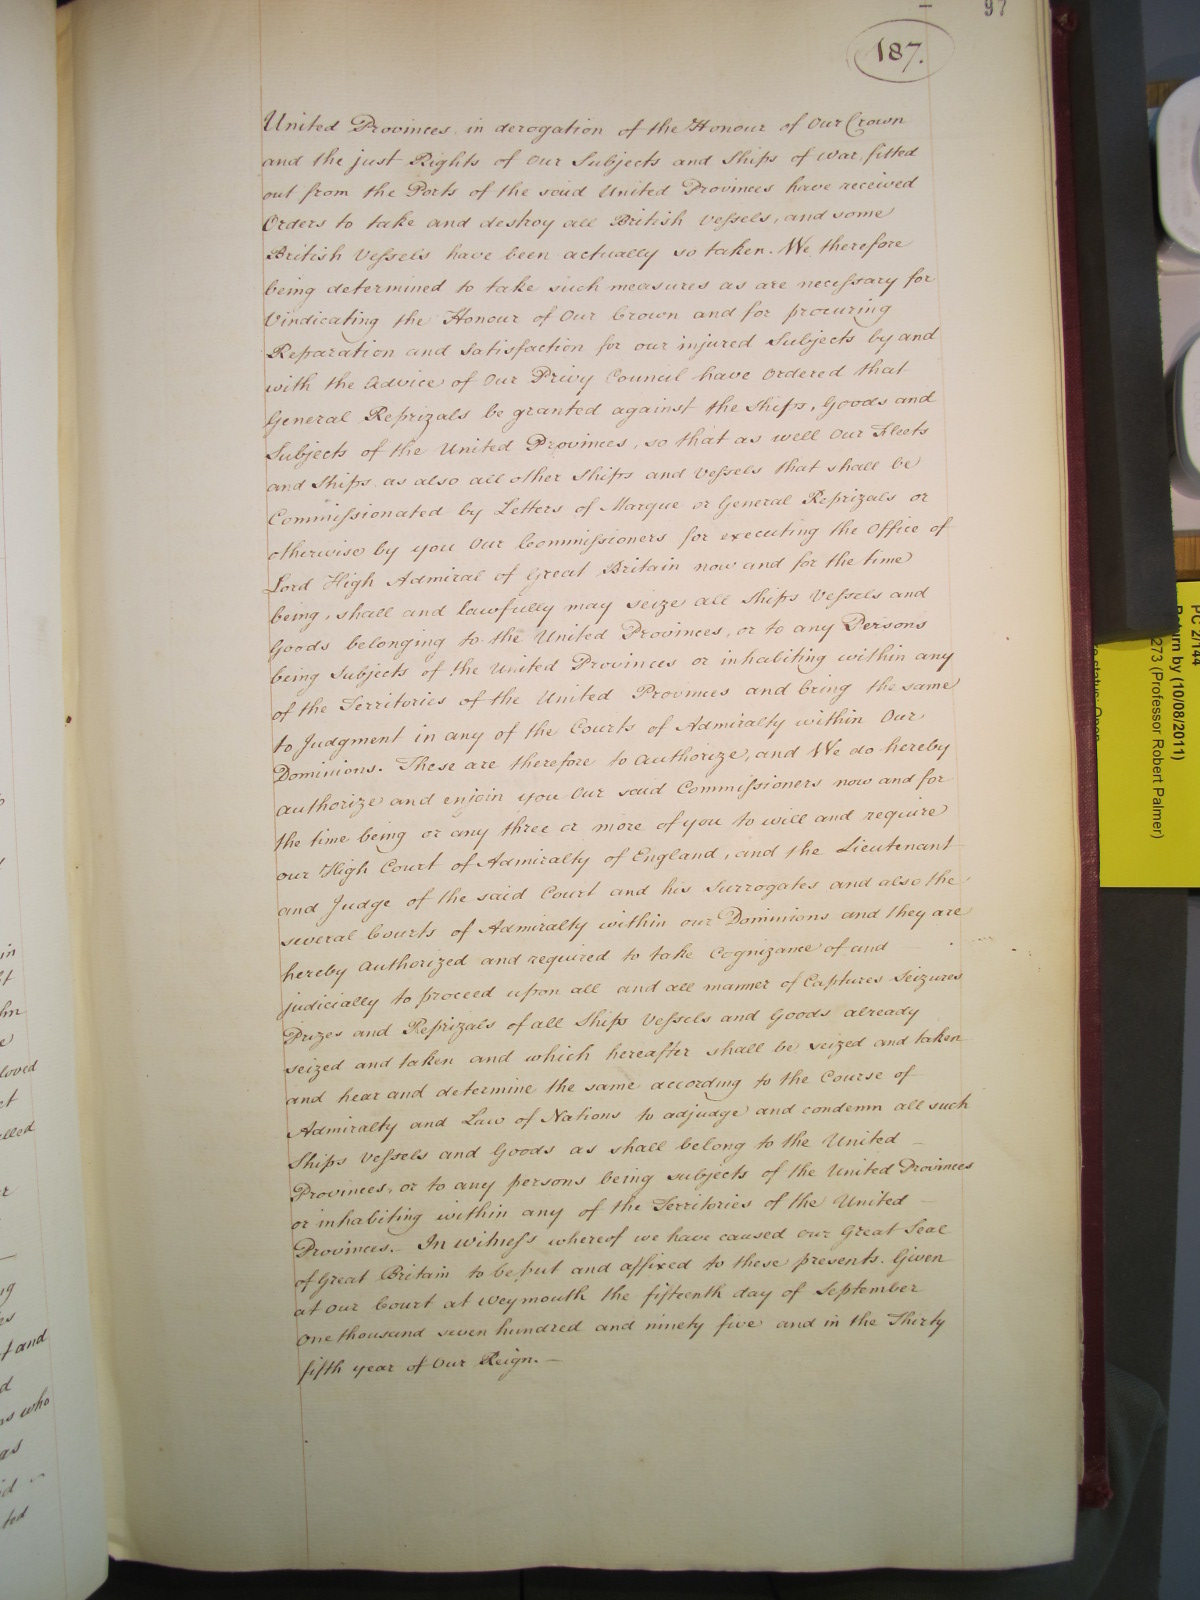 97
187.
United Provinces in derogation of the Honour of Our Crown
and the just Rights of Our Subjects and Ships of War fitted
out from the Ports of the said United Provinces have received
Orders to take and destroy all British Vessels, and some
British Vessels have been actually so taken. We therefore
being determined to take such measures as are necessary for
Vindicating the Honour of Our Crown and for procuring
Reparation and Satisfaction for our injured Subjects by and
with the Advice of Our Privy Council have Ordered that
General Reprizals be granted against the Ships, Goods and
Subjects of the United Provinces, so that as well Our Fleets
and Ships, as also all other Ships and Vessels that shall be
Commissionated by Letters of Marque or General Reprizals or
otherwise by you Our Commissioners for executing the Office of
Lord High Admiral of Great Britain now and for the time
being, shall and lawfully may seize all Ships Vessels and
Goods belonging to the United Provinces, or to any Persons
being Subjects of the United Provinces or inhabiting within any
of the Territories of the United Provinces and bring the same
to Judgment in any of the Courts of Admiralty within Our
Dominions. These are therefore to Authorize, and We do hereby
authorize and enjoin you Our said Commissioners now and for
the time being or any three or more of you to will and require
our High Court of Admiralty of England, and the Lieutenant
and Judge of the said Court and his Surrogates and also the
several Courts of Admiralty within our Dominions and they are
hereby Authorized and required to take Cognizance of and
judicially to proceed upon all and all manner of Captures Seizures
Prizes and Reprizals of all Ships Vessels and Goods already
seized and taken and which hereafter shall be seized and taken
and hear and determine the same according to the Course of
Admiralty and Law of Nations to adjudge and condemn all such
Ships Vessels and Goods as shall belong to the United
Provinces, or to any persons being subjects of the United Provinces
or inhabiting within any of the Territories of the United
Provinces. In Witness whereof we have caused our Great Seal
of Great Britain to be put and affixed to these presents. Given
at Our Court at Weymouth the fifteenth day of September
One thousand seven hundred and ninety five and in the Thirty
fifth year of Our Reign.
PC 2/144
Return by (10/08/2011)
273 (Professor Robert Palmer)
status: Open
in
loved
and
who
as